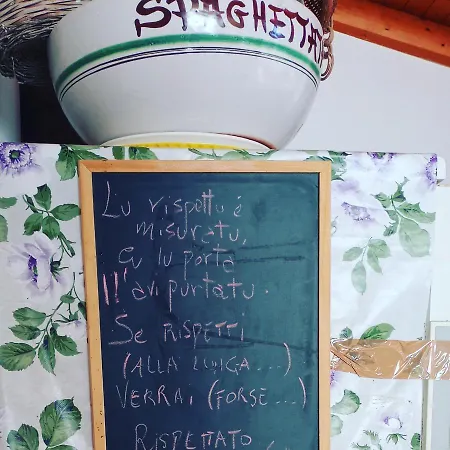 SPAGHETTAT
Lu rispettu é
misuratu,
cu lu porta
ll'avi purtatu.
SE RISPETTI
(ALLA LUNGA...)
VERRAI (FORSE...)
RISPETTATO